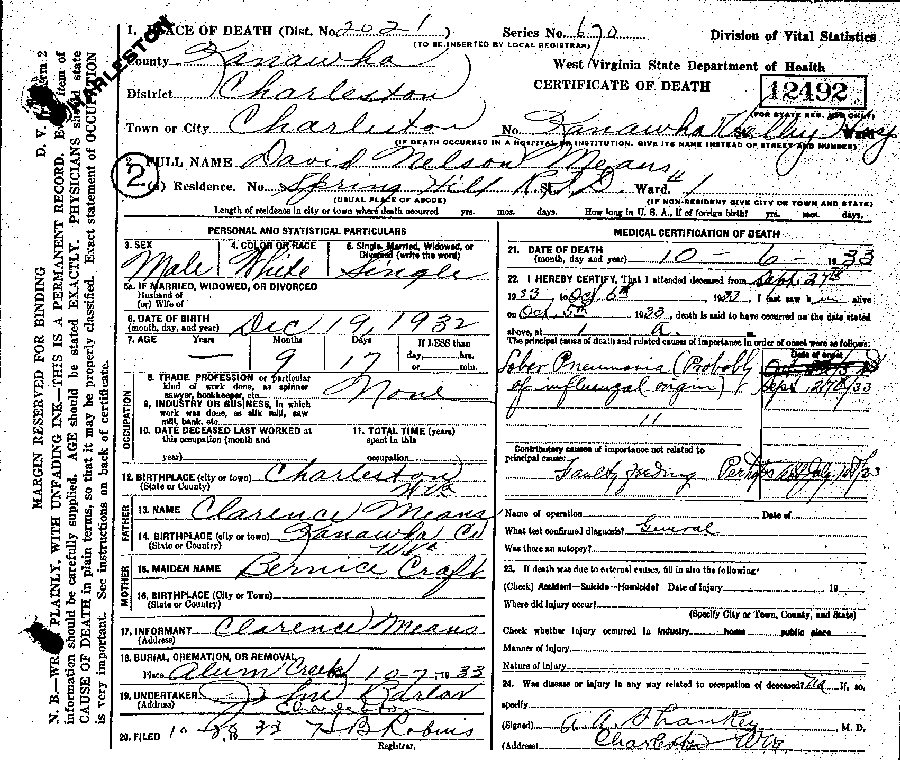 CHARLESTON
D. V. S. Form 2
MARGIN RESERVED FOR BINDING
N. B.—WRITE PLAINLY, WITH UNFADING INK—THIS IS A PERMANENT RECORD. Every item of
information should be carefully supplied. AGE should be stated EXACTLY. PHYSICIANS should state
CAUSE OF DEATH in plain terms, so that it may be properly classified. Exact statement of OCCUPATION
is very important. See instructions on back of certificate.
1. PLACE OF DEATH (Dist. No. 2021) Series No. 670 Division of Vital Statistics
(TO BE INSERTED BY LOCAL REGISTRAR)
County Kanawha West Virginia State Department of Health
District Charleston CERTIFICATE OF DEATH 12492
(FOR STATE REG. USE ONLY)
Town or City Charleston No. Kanawha Valley Hosp Ward
(IF DEATH OCCURRED IN A HOSPITAL OR INSTITUTION, GIVE ITS NAME INSTEAD OF STREET AND NUMBER)
2. FULL NAME David Nelson Means
(a) Residence. No. Spring Hill R.F.D. St. Ward. #1
(USUAL PLACE OF ABODE) (IF NON-RESIDENT GIVE CITY OR TOWN AND STATE)
Length of residence in city or town where death occurred yrs. mos. days. How long in U. S. A., if of foreign birth? yrs. mos. days.
PERSONAL AND STATISTICAL PARTICULARS
3. SEX 4. COLOR OR RACE 5. Single, Married, Widowed, or Divorced (write the word)
Male White Single
5a. IF MARRIED, WIDOWED, OR DIVORCED
Husband of
(or) Wife of
6. DATE OF BIRTH
(month, day, and year) Dec 19, 1932
7. AGE Years Months Days If LESS than
— 9 17 day, hrs.
or min.
OCCUPATION
8. TRADE, PROFESSION or particular
kind of work done, as spinner
sawyer, bookkeeper, etc. None
9. INDUSTRY OR BUSINESS, in which
work was done, as silk mill, saw
mill, bank, etc.
10. DATE DECEASED LAST WORKED at 11. TOTAL TIME (years)
this occupation (month and spent in this
year) occupation
12. BIRTHPLACE (city or town) Charleston
(State or County) W Va
FATHER
13. NAME Clarence Means
14. BIRTHPLACE (city or town) Kanawha Co
(State or Country) W Va
MOTHER
15. MAIDEN NAME Bernice Craft
16. BIRTHPLACE (City or Town)
(State or Country)
17. INFORMANT Clarence Means
(Address)
18. BURIAL, CREMATION, OR REMOVAL
Place Alum Creek 10-7, 1933
19. UNDERTAKER
(Address) Charleston
20. FILED 10 33 H B Robins
Registrar.
MEDICAL CERTIFICATION OF DEATH
21. DATE OF DEATH
(month, day and year) 10 - 6 - 1933
22. I HEREBY CERTIFY, That I attended deceased from Sept. 27th
1933 to Oct 6th 1933, I last saw him alive
on Oct. 5th 1933, death is said to have occurred on the date stated
above, at 1 a. m.
The principal cause of death and related causes of importance in order of onset were as follows:
Date of onset
Lobar Pneumonia (Probably
of influenzal origin) Sept 27th/33
11
Contributory causes of importance not related to
principal cause:
Faulty feeding
Name of operation Date of
What test confirmed diagnosis? General
Was there an autopsy?
23. If death was due to external causes, fill in also the following:
(Check) Accident—Suicide—Homicide? Date of Injury 19
Where did injury occur?
(Specify City or Town, County, and State)
Check whether injury occurred in industry home public place
Manner of injury
Nature of injury
24. Was disease or injury in any way related to occupation of deceased? No If, so,
specify
(Signed) A. A. Shawkey M. D.
(Address) Charleston W Va.